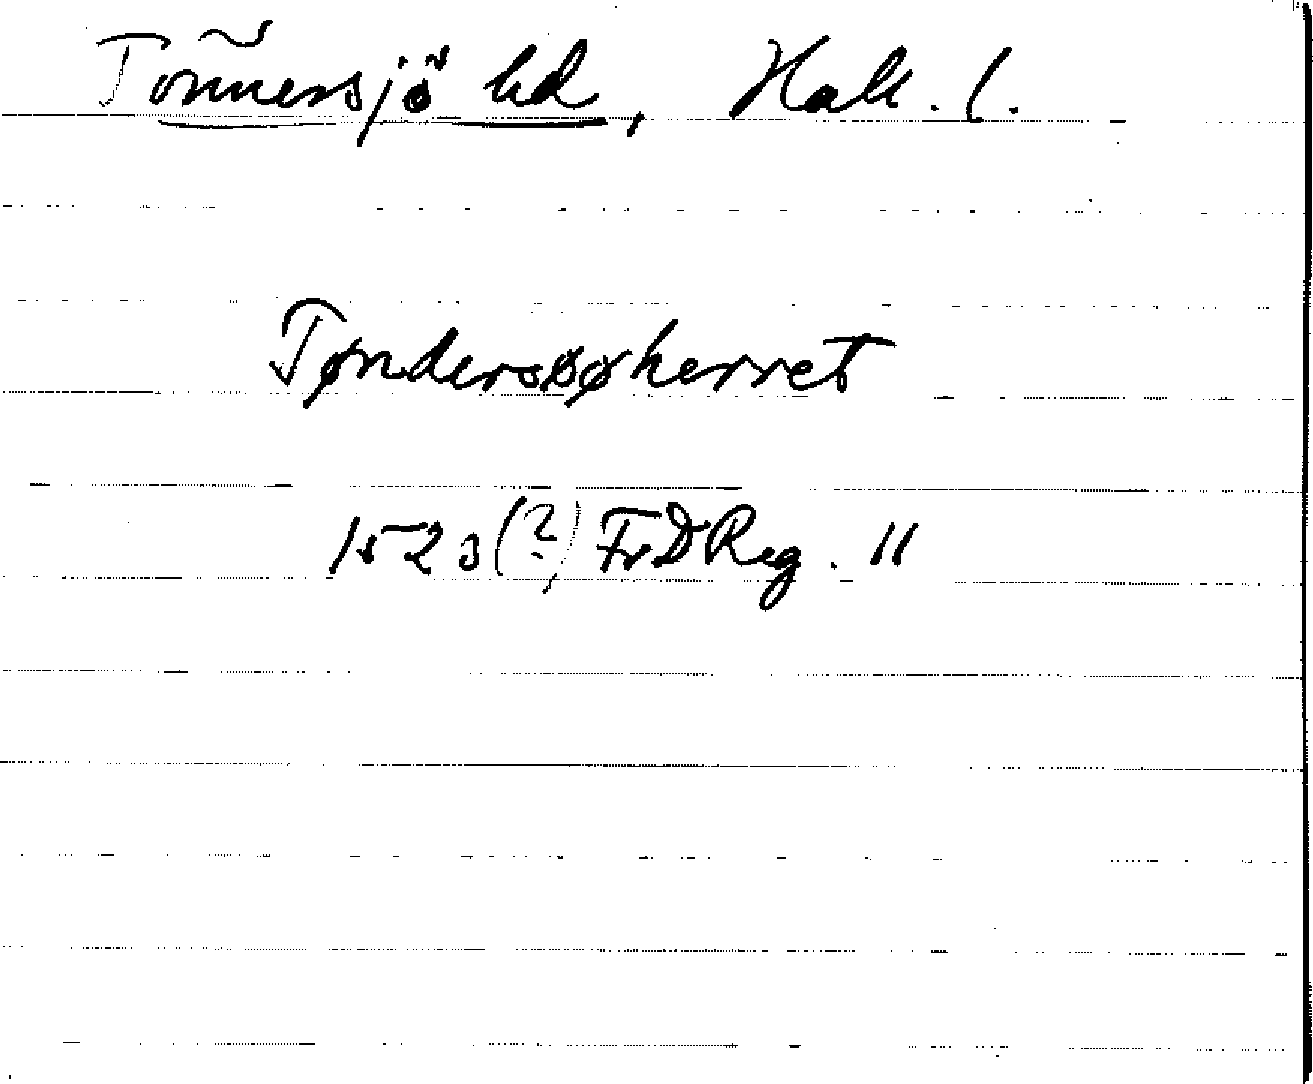 Tönnersjö hd, Hall. l.
Tønderssøherret
1523(?) FrDReg. 11